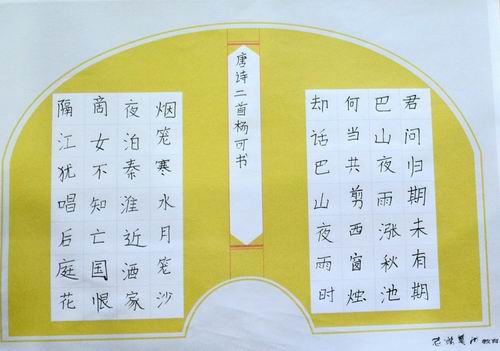 君问归期未有期
巴山夜雨涨秋池
何当共剪西窗烛
却话巴山夜雨时
唐诗二首杨可书
烟笼寒水月笼沙
夜泊秦淮近酒家
商女不知亡国恨
隔江犹唱后庭花
教育